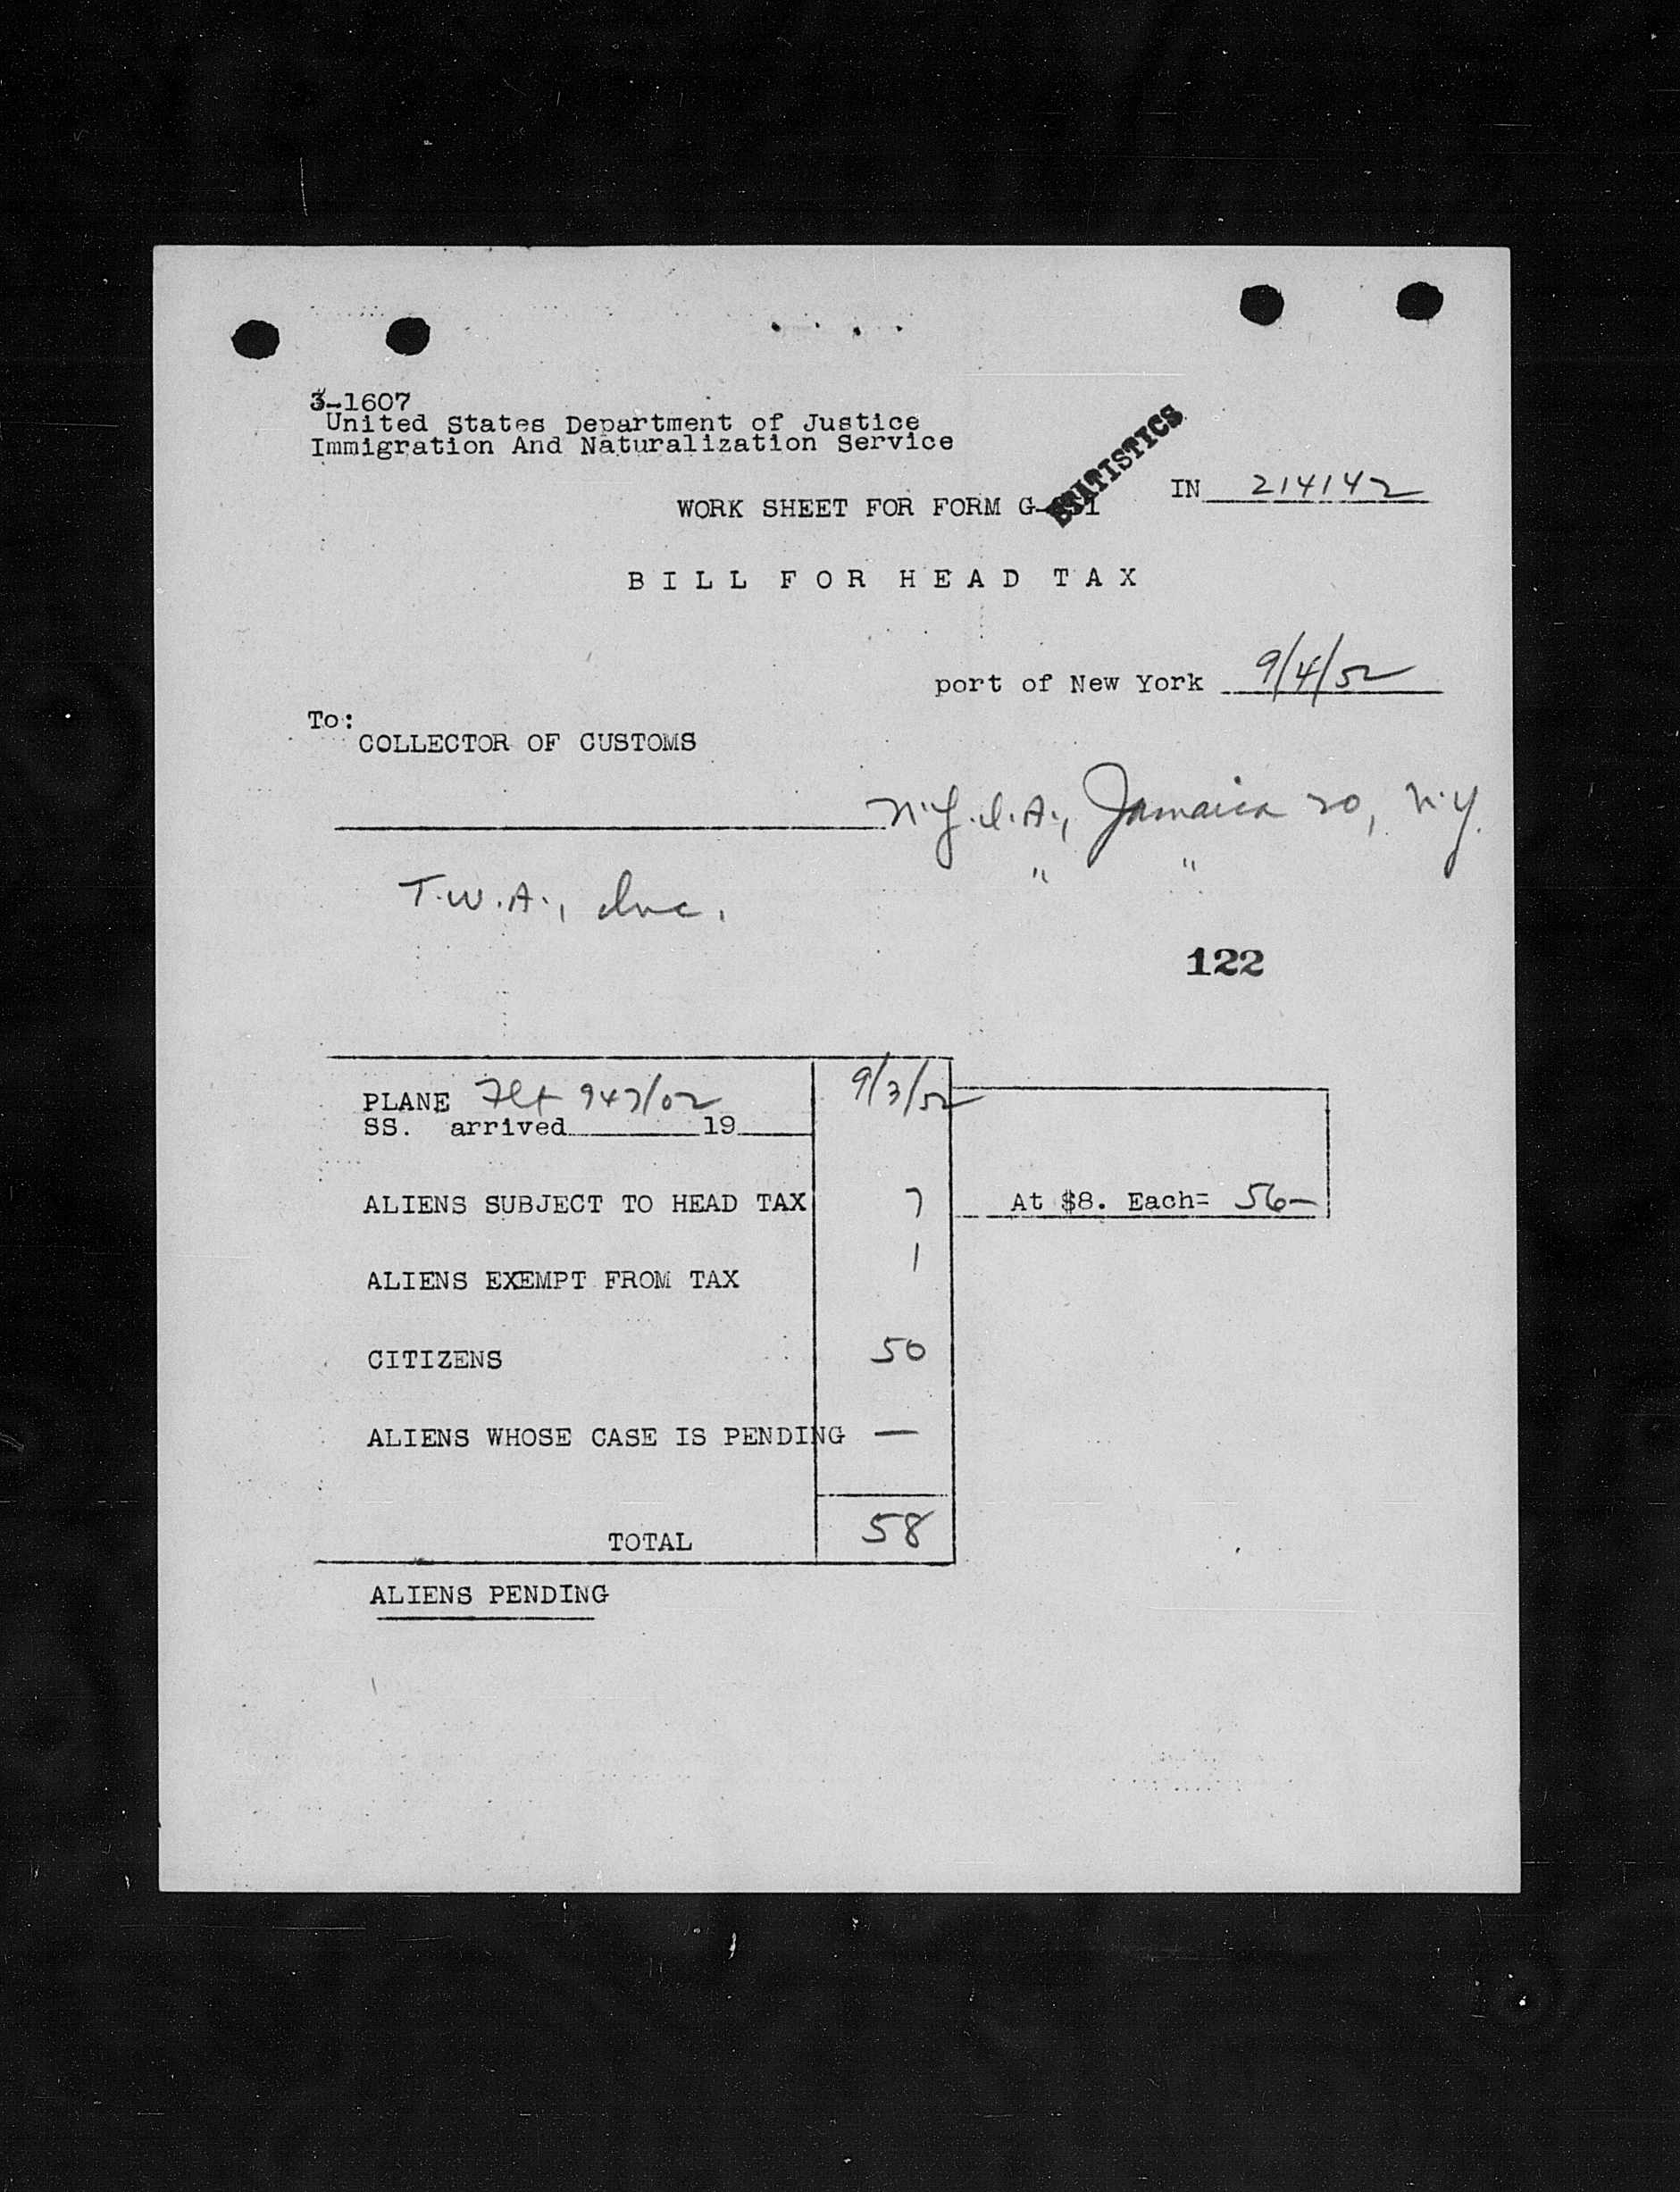 3-1607
United States Department of Justice
Immigration And Naturalization Service
STATISTICS
IN 214142
WORK SHEET FOR FORM G-
BILL FOR HEAD TAX
port of New York 9/4/52
To:
COLLECTOR OF CUSTOMS
N.Y.I.A., Jamaica 20, N.Y.
" "
T.W.A., Inc.
122
PLANE Flt 947/02 9/3/52
SS. arrived 19
ALIENS SUBJECT TO HEAD TAX 7 At $8. Each= 56-
ALIENS EXEMPT FROM TAX 1
CITIZENS 50
ALIENS WHOSE CASE IS PENDING —
TOTAL 58
ALIENS PENDING